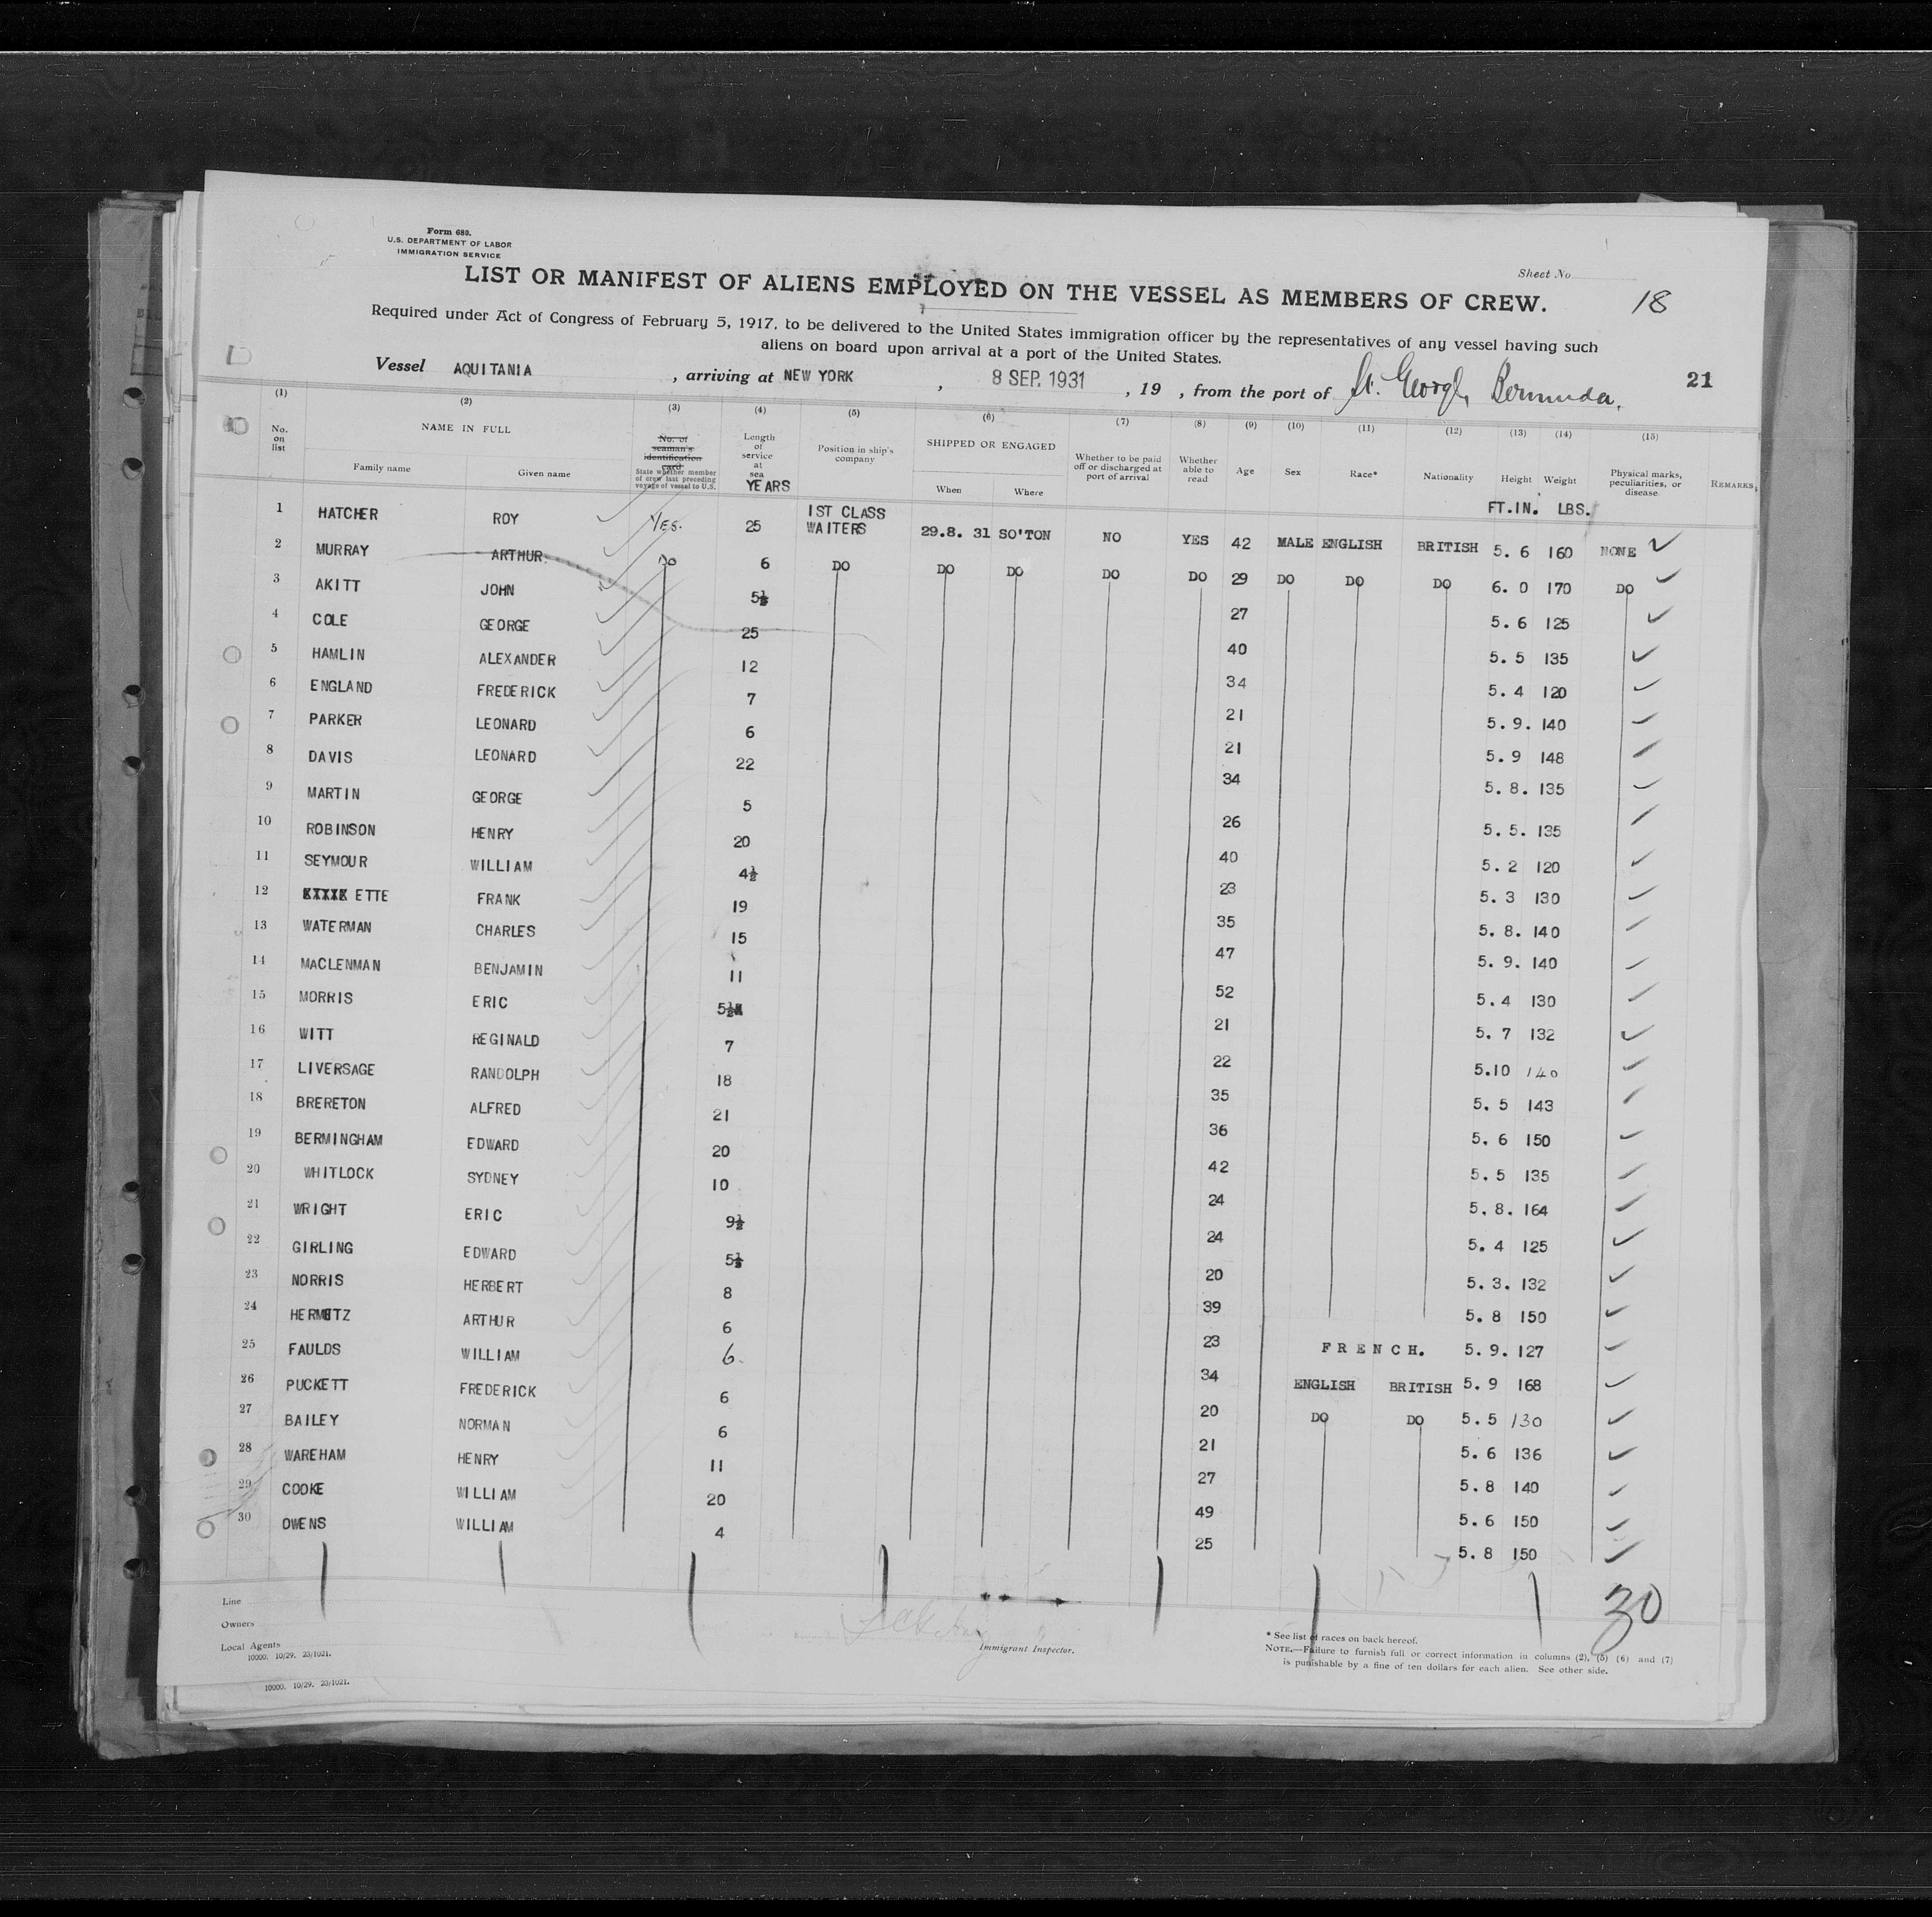 Form 680.
U.S. DEPARTMENT OF LABOR
IMMIGRATION SERVICE
Sheet No.
LIST OR MANIFEST OF ALIENS EMPLOYED ON THE VESSEL AS MEMBERS OF CREW.
18
Required under Act of Congress of February 5, 1917, to be delivered to the United States immigration officer by the representatives of any vessel having such
aliens on board upon arrival at a port of the United States.
Vessel AQUITANIA , arriving at NEW YORK , 8 SEP. 1931 , 19 , from the port of St. George, Bermuda.
21
(1) (2) (3) (4) (5) (6) (7) (8) (9) (10) (11) (12) (13) (14) (15)
No. on list
NAME IN FULL
Family name Given name
No. of seaman's identification card
State whether member of crew last preceding voyage of vessel to U.S.
Length of service at sea
YEARS
Position in ship's company
SHIPPED OR ENGAGED
When Where
Whether to be paid off or discharged at port of arrival
Whether able to read
Age Sex Race* Nationality Height Weight
Physical marks, peculiarities, or disease
REMARKS,
FT.IN. LBS.
1 HATCHER ROY YES. 25 1ST CLASS WAITERS 29.8. 31 SO'TON NO YES 42 MALE ENGLISH BRITISH 5. 6 160 NONE
2 MURRAY ARTHUR. DO 6 DO DO DO DO DO 29 DO DO DO 6. 0 170 DO
3 AKITT JOHN 5½ 27 5. 6 125
4 COLE GEORGE 25 40 5. 5 135
5 HAMLIN ALEXANDER 12 34 5. 4 120
6 ENGLAND FREDERICK 7 21 5. 9. 140
7 PARKER LEONARD 6 21 5. 9 148
8 DAVIS LEONARD 22 34 5. 8. 135
9 MARTIN GEORGE 5 26 5. 5. 135
10 ROBINSON HENRY 20 40 5. 2 120
11 SEYMOUR WILLIAM 4½ 23 5. 3 130
12 ETTE FRANK 19 35 5. 8. 140
13 WATERMAN CHARLES 15 47 5. 9. 140
14 MACLENMAN BENJAMIN 11 52 5. 4 130
15 MORRIS ERIC 5½ 21 5. 7 132
16 WITT REGINALD 7 22 5.10 140
17 LIVERSAGE RANDOLPH 18 35 5. 5 143
18 BRERETON ALFRED 21 36 5. 6 150
19 BERMINGHAM EDWARD 20 42 5. 5 135
20 WHITLOCK SYDNEY 10 24 5. 8. 164
21 WRIGHT ERIC 9½ 24 5. 4 125
22 GIRLING EDWARD 5½ 20 5. 3. 132
23 NORRIS HERBERT 8 39 5. 8 150
24 ARTHUR 6 23 FRENCH. 5. 9. 127
25 FAULDS WILLIAM 6. 34 ENGLISH BRITISH 5. 9 168
26 PUCKETT FREDERICK 6 20 DO DO 5. 5 130
27 BAILEY NORMAN 6 21 5. 6 136
28 WAREHAM HENRY 11 27 5. 8 140
29 COOKE WILLIAM 20 49 5. 6 150
30 OWENS WILLIAM 4 25 5. 8 150
30
Line
Owners
Local Agents
10000. 10/29. 23/1021.
Immigrant Inspector.
* See list of races on back hereof.
NOTE.—Failure to furnish full or correct information in columns (2), (5) (6) and (7)
is punishable by a fine of ten dollars for each alien. See other side.
10000. 10/29. 23/1021.